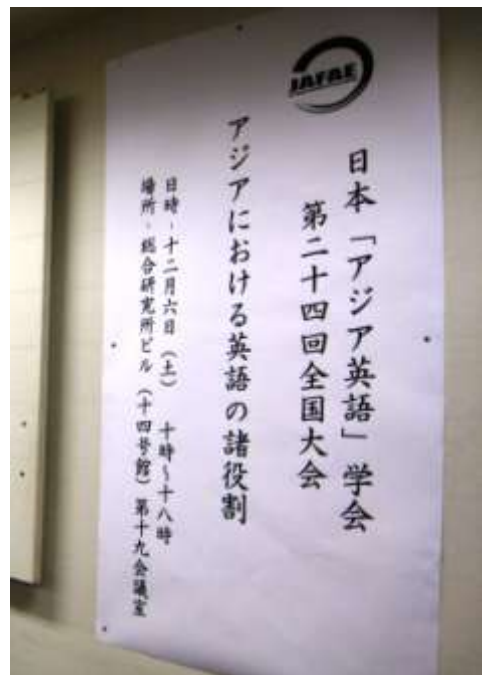 JAFAE
日本「アジア英語」学会
第二十四回全国大会
アジアにおける英語の諸役割
日時・十二月六日(土) 十時~十八時
場所・総合研究所ビル(十四号館)第十九会議室